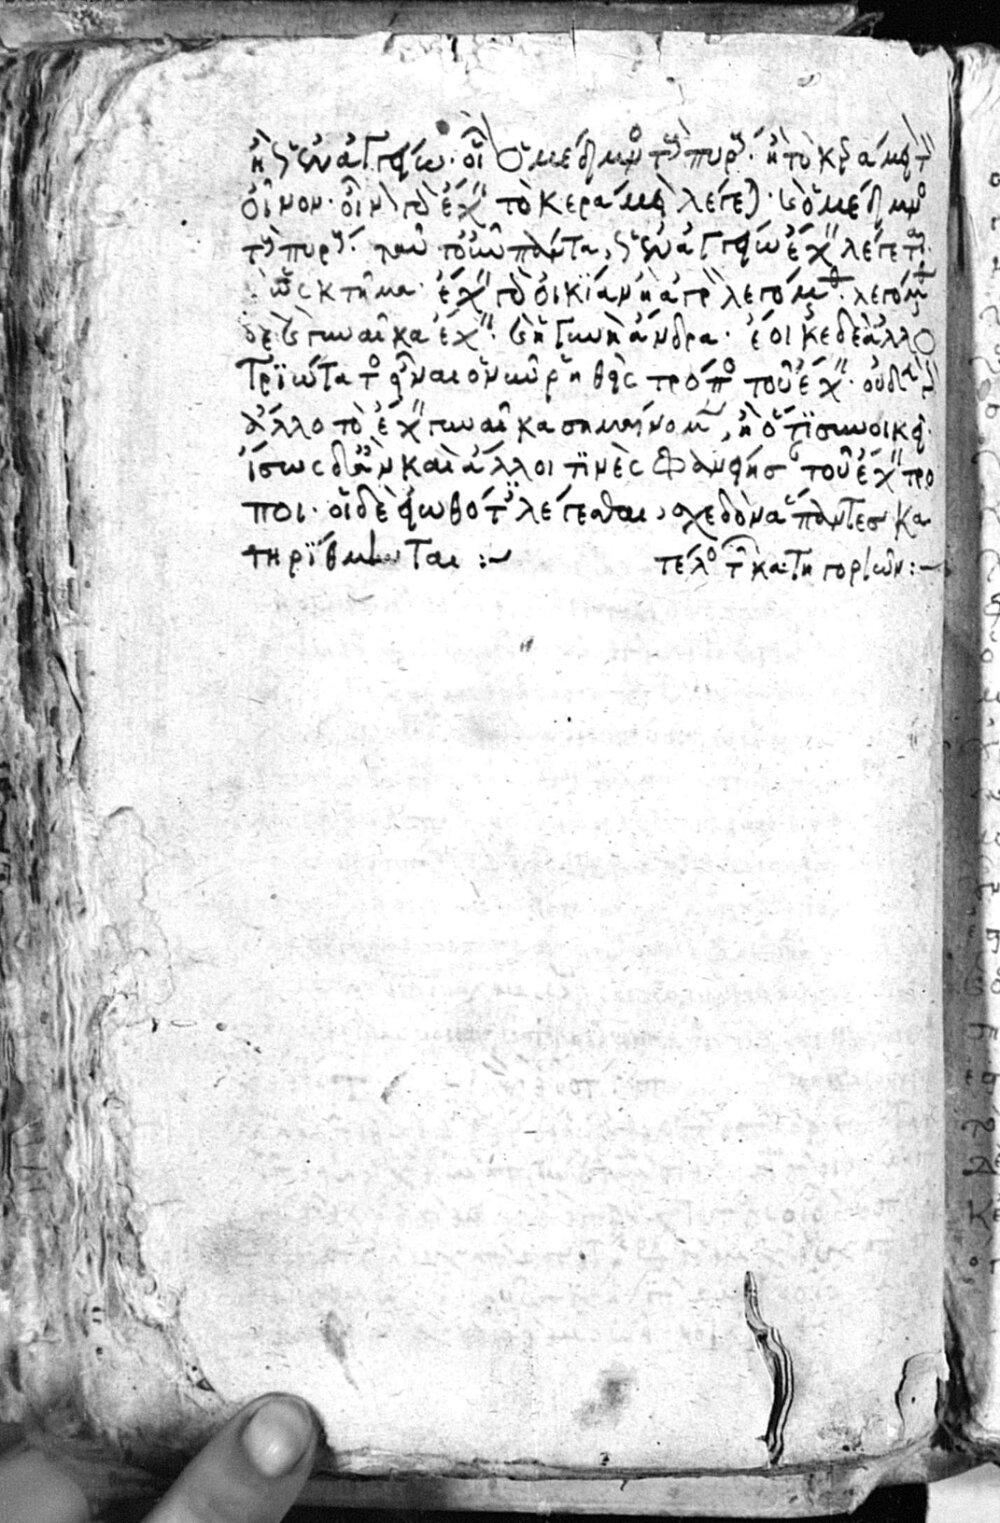 ἢ ὡς ἐν ἀγγείῳ· οἷον ὁ μέδιμνος τοὺς πυρούς· ἢ τὸ κεράμιον τὸν
οἶνον· οἶνον γὰρ ἔχειν τὸ κεράμιον λέγεται· καὶ ὁ μέδιμνος
τοὺς πυρούς· ταῦτ' οὖν πάντα, ὡς ἐν ἀγγείῳ ἔχειν λέγεται·
ἢ ὡς κτῆμα· ἔχειν γὰρ οἰκίαν ἢ ἀγρὸν λεγόμεθα· λεγόμεθα
δὲ καὶ γυναῖκα ἔχειν· καὶ ἡ γυνὴ ἄνδρα· ἔοικε δὲ ἀλλο
τριώτατος εἶναι ὁ νῦν ῥηθεὶς τρόπος τοῦ ἔχειν· οὐδὲν γὰρ
ἄλλο τὸ ἔχειν γυναῖκα σημαίνομεν, ἢ ὅτι συνοικεῖ·
ἴσως δ' ἂν καὶ ἄλλοι τινὲς φανείησαν τοῦ ἔχειν τρό
ποι· οἱ δὲ εἰωθότες λέγεσθαι, σχεδὸν ἅπαντες κα
τηρίθμηνται :~ τέλος τῶν κατηγοριῶν :~